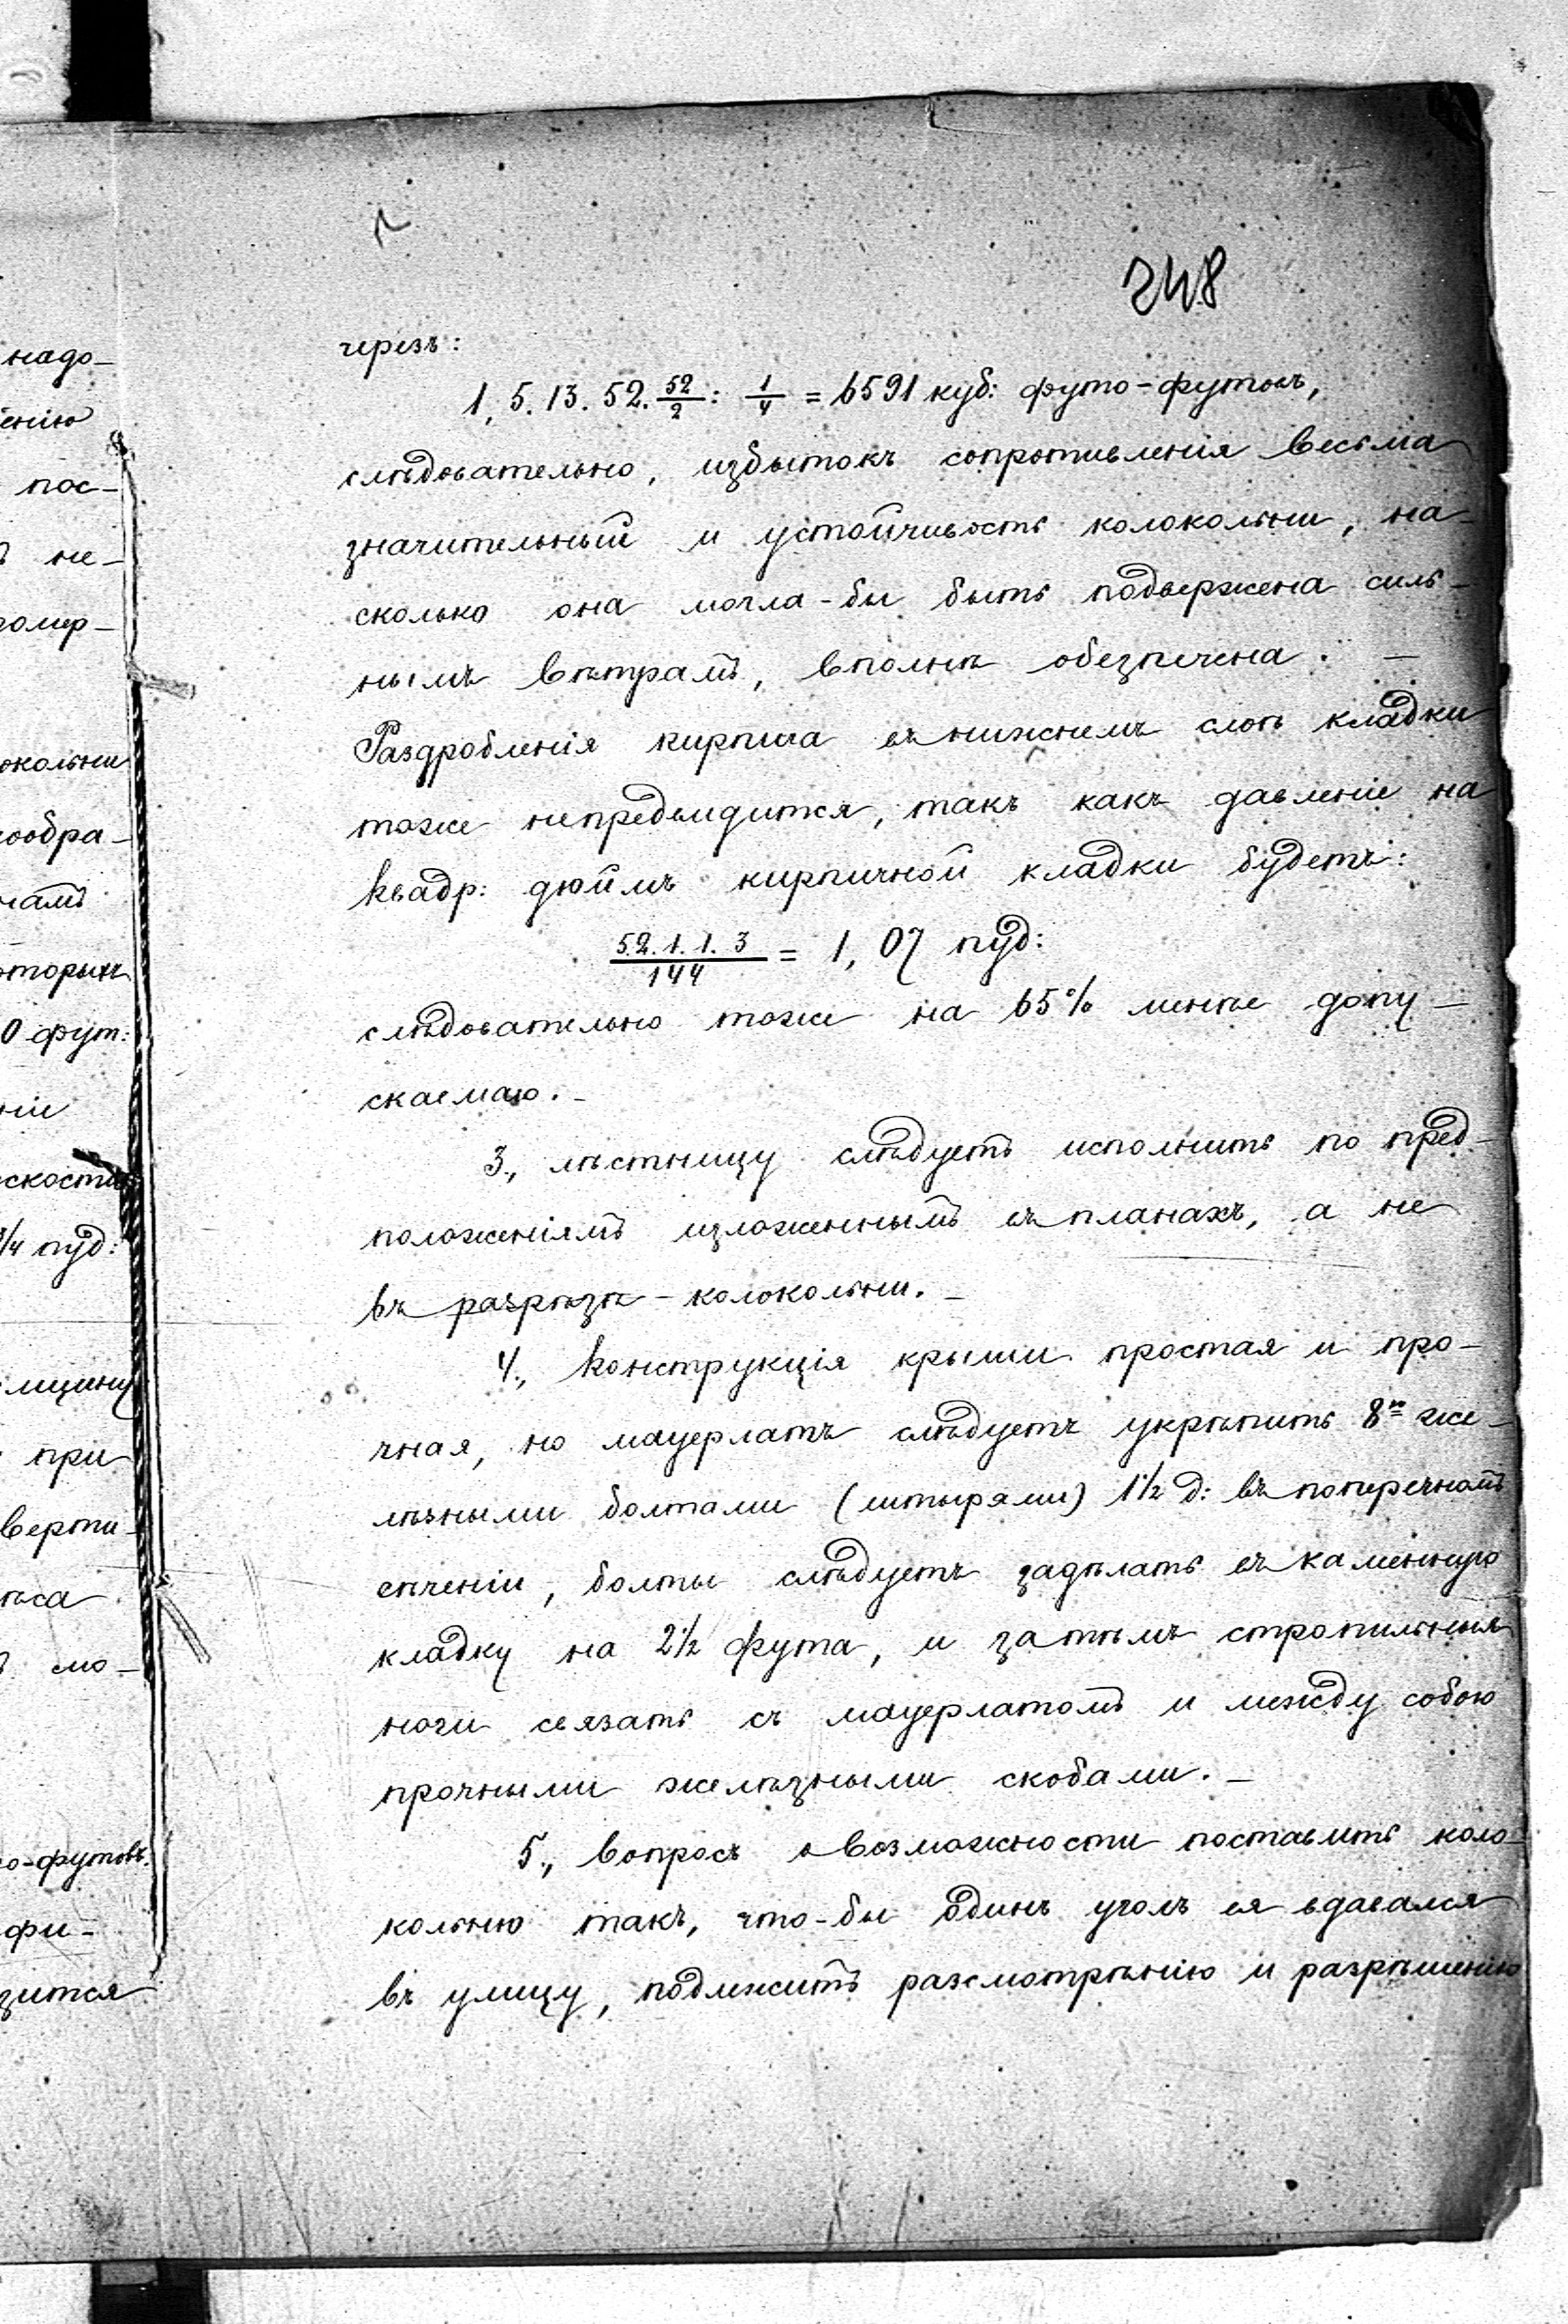 248
черезъ:
1,5.13.52.52/2 : 1/4 = 6591 куб: футо-футовъ,
слѣдовательно, избытокъ сопротивленія весьма
значительный и устойчивость колокольни, на-
сколько она могла-бы быть подвержена силь-
нымъ вѣтрамъ, вполнѣ обезпечена. —
Раздробленія кирпича въ нижнемъ слоѣ кладки
тоже непредвидится, такъ какъ давленіе на
квадр: дюймъ кирпичной кладки будетъ:
52.1.1.3/144 = 1,07 пуд:
слѣдовательно тоже на 65% менѣе допу-
скаемаго. —
3., лѣстницу слѣдуетъ исполнить по пред-
положеніямъ изложеннымъ въ планахъ, а не
въ разрѣзѣ - колокольни. —
4., Конструкція крыши простая и про-
чная, но мауерлатъ слѣдуетъ укрѣпить 8ю же-
лѣзными болтами (штырями) 1 1/2 д: въ поперечномъ
сѣченіи, болты слѣдуетъ задѣлать въ каменную
кладку на 2 1/2 фута, и затѣмъ стропильныя
ноги связать съ мауерлатомъ и между собою
прочными желѣзными скобами. —
5., Вопросъ о возможности поставить коло-
кольню такъ, что-бы одинъ уголъ ея вдавался
въ улицу, подлежитъ разсмотрѣнію и разрѣшенію
надо-
енію
пос-
не-
ромер-
окольни
сообра-
намъ
оторыхъ
0 фут:
ніи
скости
3/4 пуд:
лщину
при
верти-
ѣса
смо-
о-футовъ.
фи-
зится